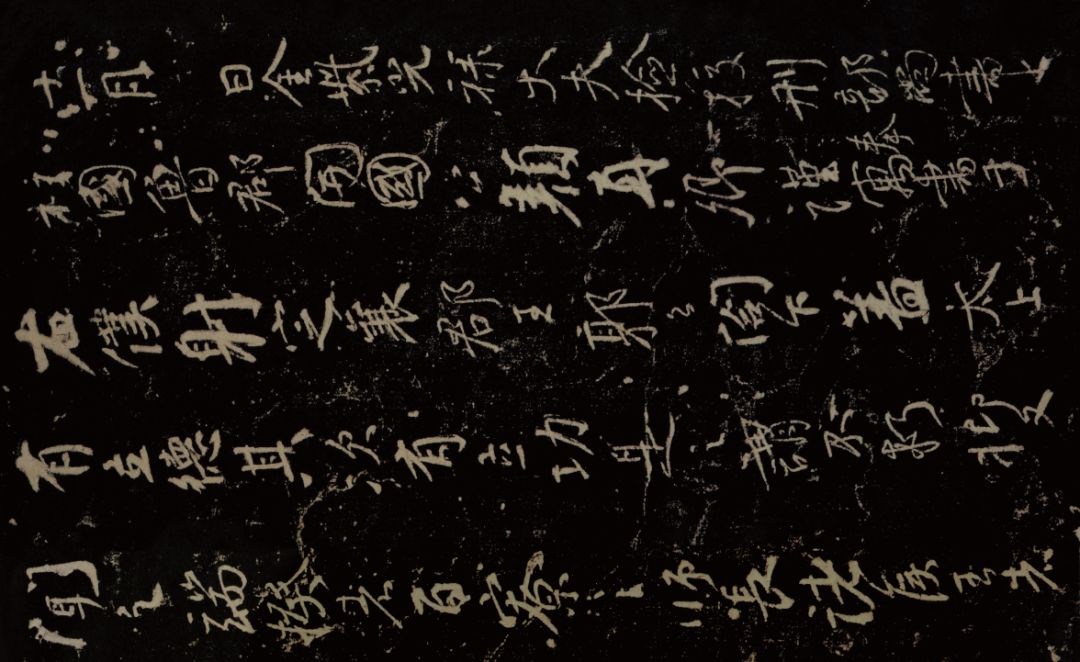 十一月 日金紫光祿大夫檢校刑部尚書上
柱國魯郡開國公顏真卿謹奉書于
右僕射定襄郡王郭公閤下蓋太上
有立德其次有立功是之謂不朽抑又
聞之端揆者百寮之師長諸侯王者